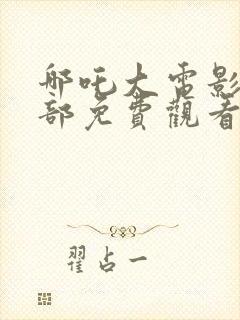 哪吒大電影
部免費觀看
翟占一